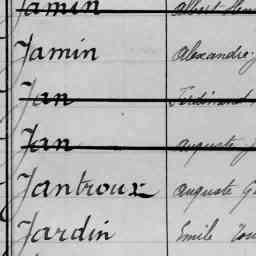 Jamin Albert
Jamin Alexandre
Jan Ferdinand
Jan Auguste
Jantroux Auguste
Jardin Emile